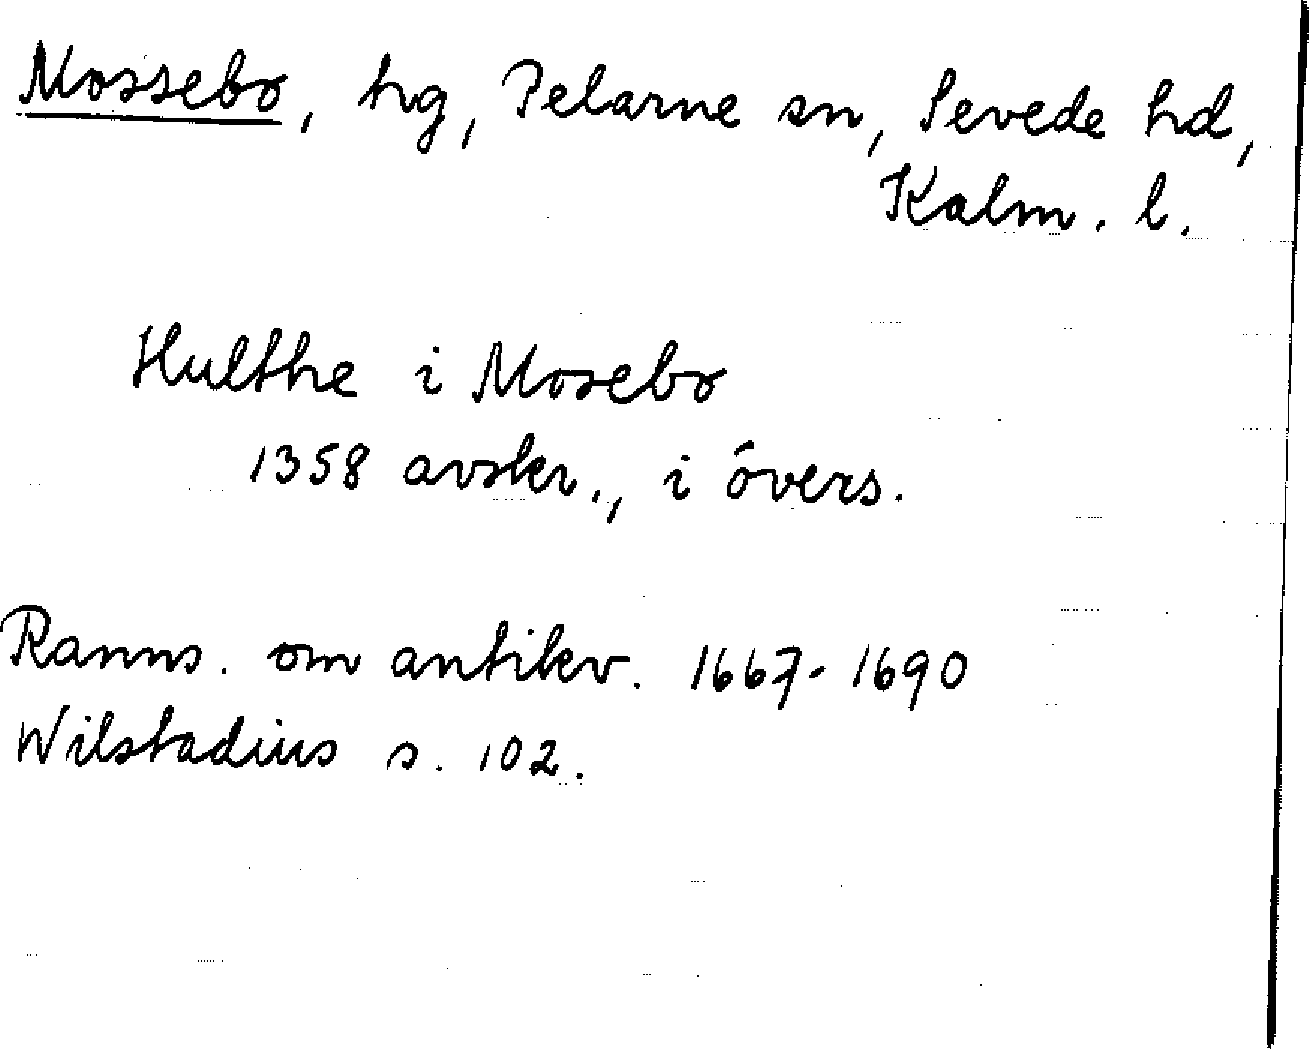 Mossebo, hg, Pelarne sn, Sevede hd,
Kalm. l.
Hulthe i Mosebo
1358 avskr., i övers.
Ranns. om antikv. 1667-1690
Wilstadius s. 102.